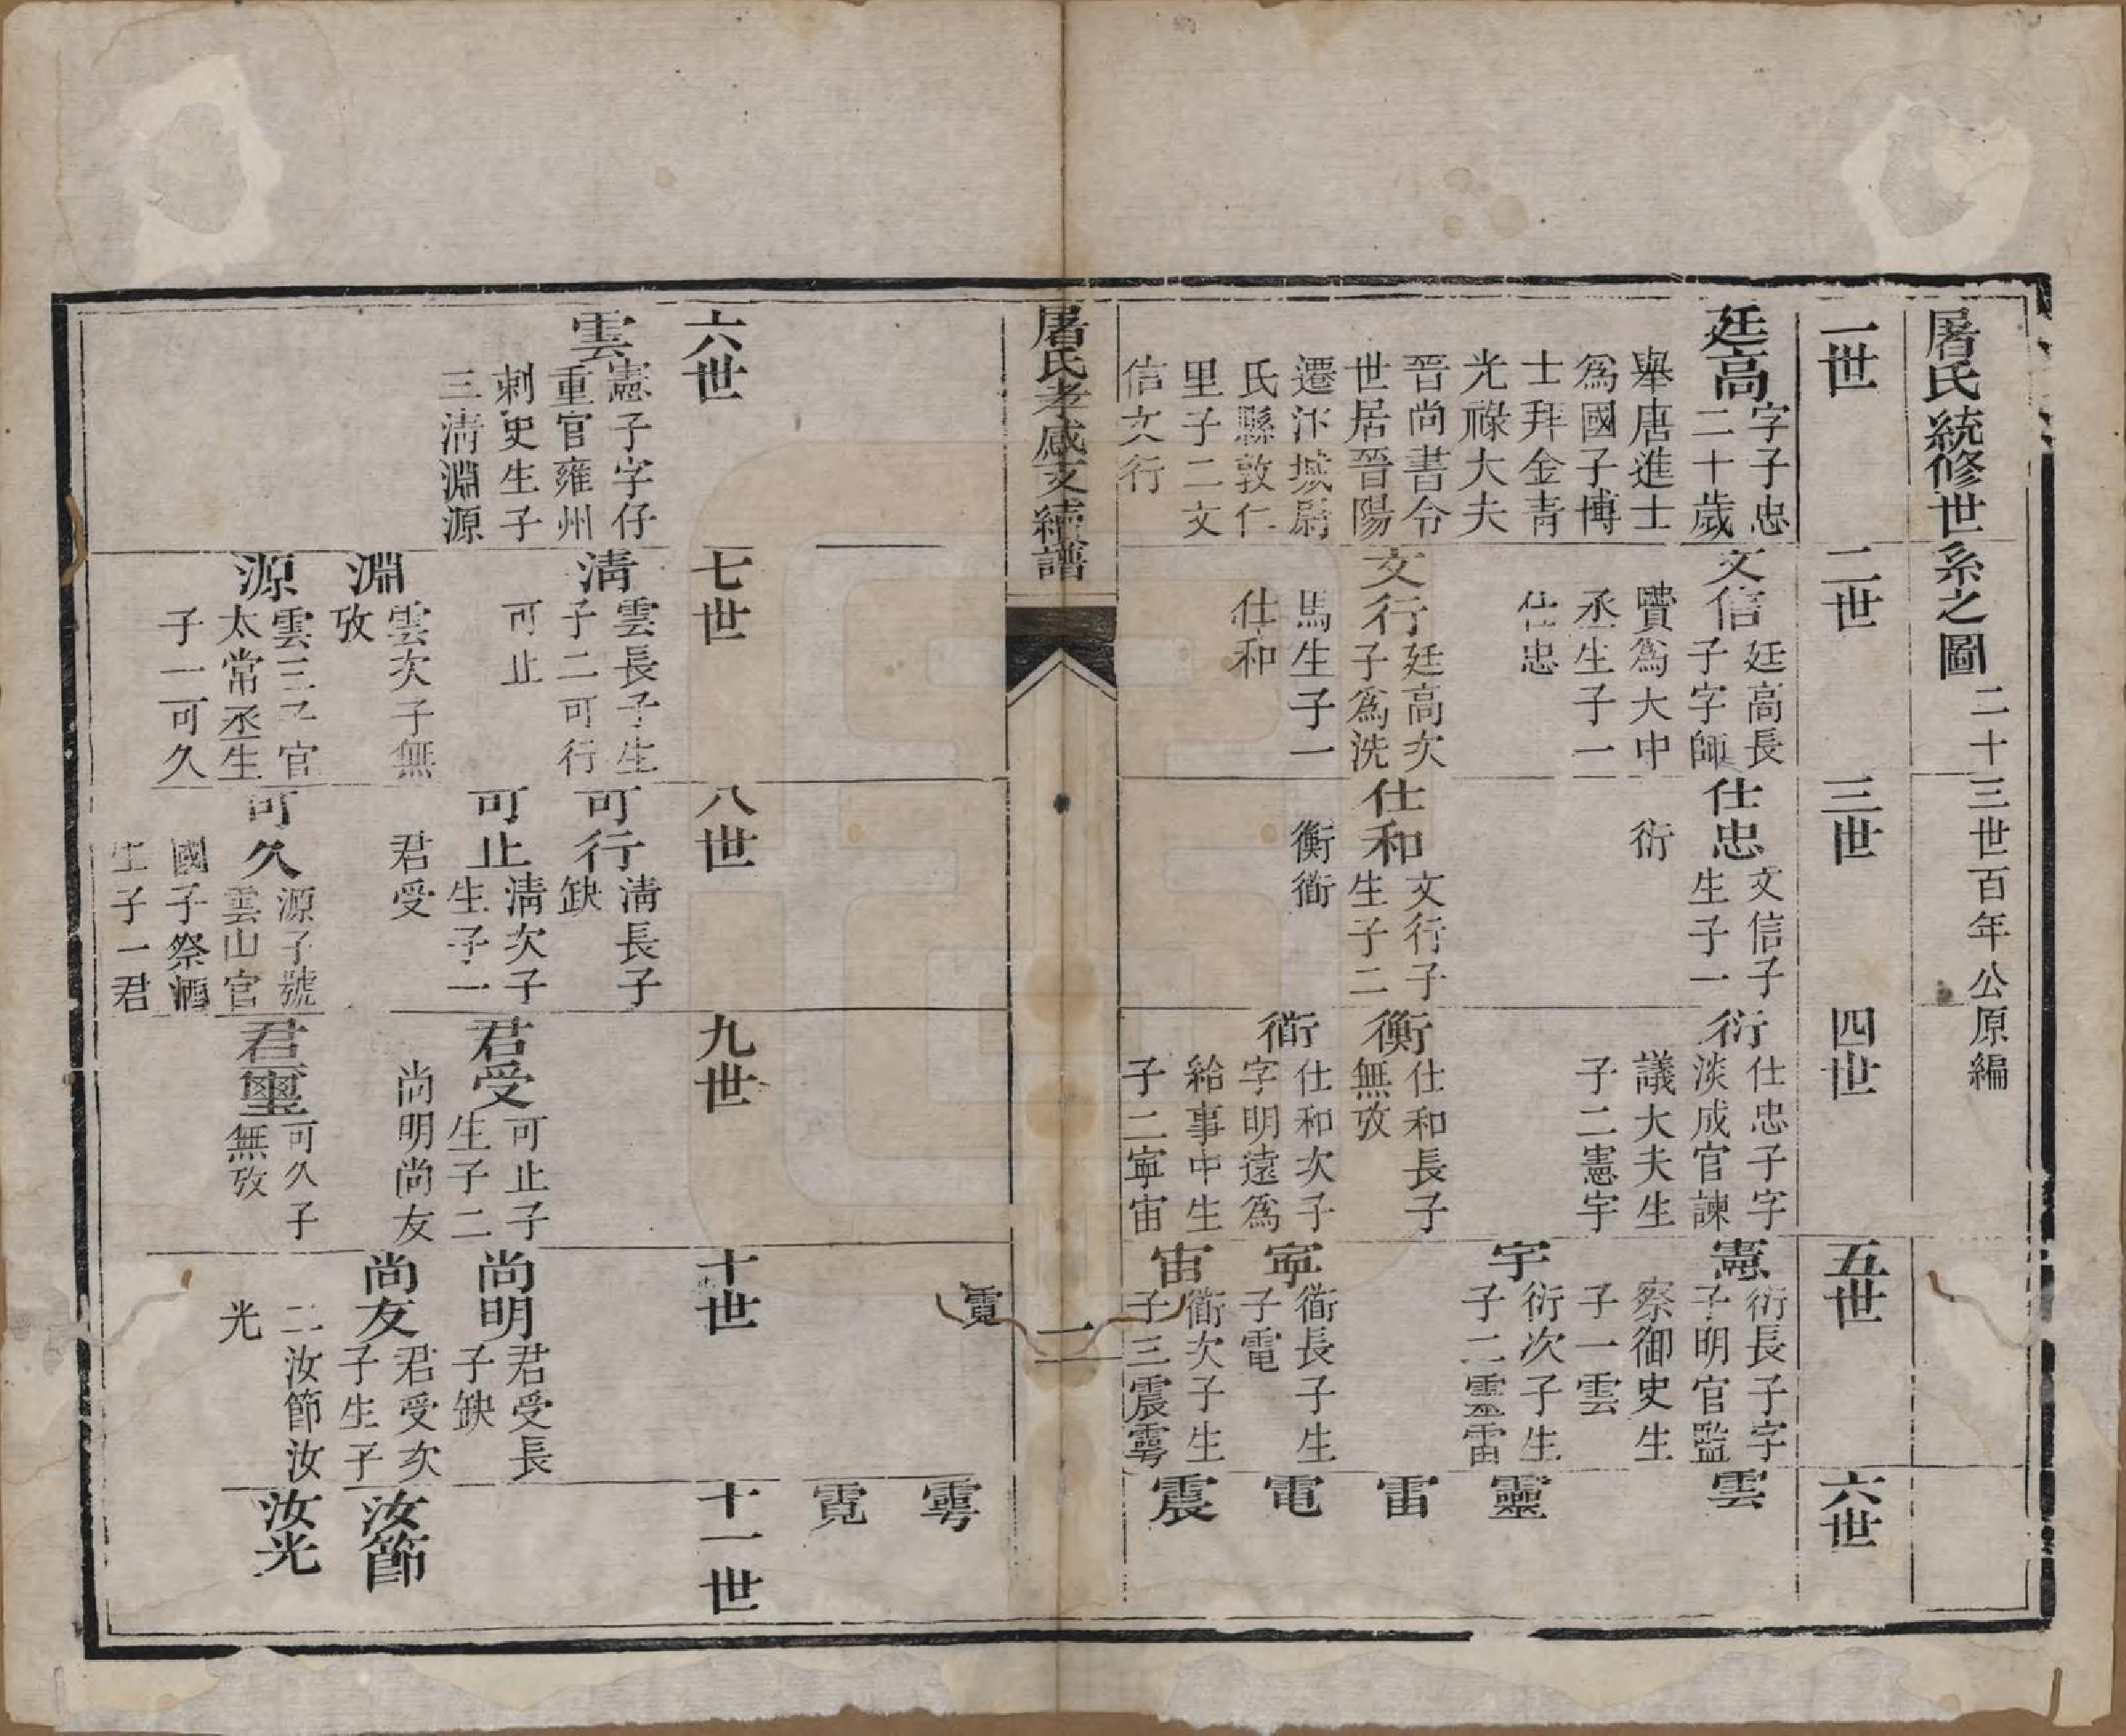 屠氏統修世系之圖二十三世百年公原編
一世
廷高字子忠
二十歲
舉唐進士
爲國子博
士拜金青
光祿大夫
晉尚書令
世居晉陽
遷汴城尉
氏縣敦仁
里子二文
信文行
二世
文信廷高長
子字師
賮爲大中
丞生子一
仕忠
文行廷高次
子爲洗
馬生子一
仕和
三世
仕忠文信子
生子一
衍
仕和文行子
生子二
衡衟
四世
衍仕忠子字
淡成官諫
議大夫生
子二憲宇
衡仕和長子
無攷
衟仕和次子
字明遠爲
給事中生
子二寧宙
五世
憲衍長子字
子明官監
察御史生
子一雲
宇衍次子生
子二靈雷
寧衟長子生
子電
宙衟次子生
子三震雩
霓
六世
雲
靈
雷
電
震
雩
霓
屠氏孝感支續譜
二
六世
雲憲子字仔
重官雍州
刺史生子
三清淵源
七世
清雲長子生
子二可行
可止
淵雲次子無
攷
源雲三子官
太常丞生
子一可久
八世
可行清長子
缺
可止清次子
生子一
君受
可久源子號
雲山官
國子祭酒
生子一君
九世
君受可止子
生子二
尚明尚友
君璽可久子
無攷
十世
尚明君受長
子缺
尚友君受次
子生子
二汝節汝
光
十一世
汝節
汝光